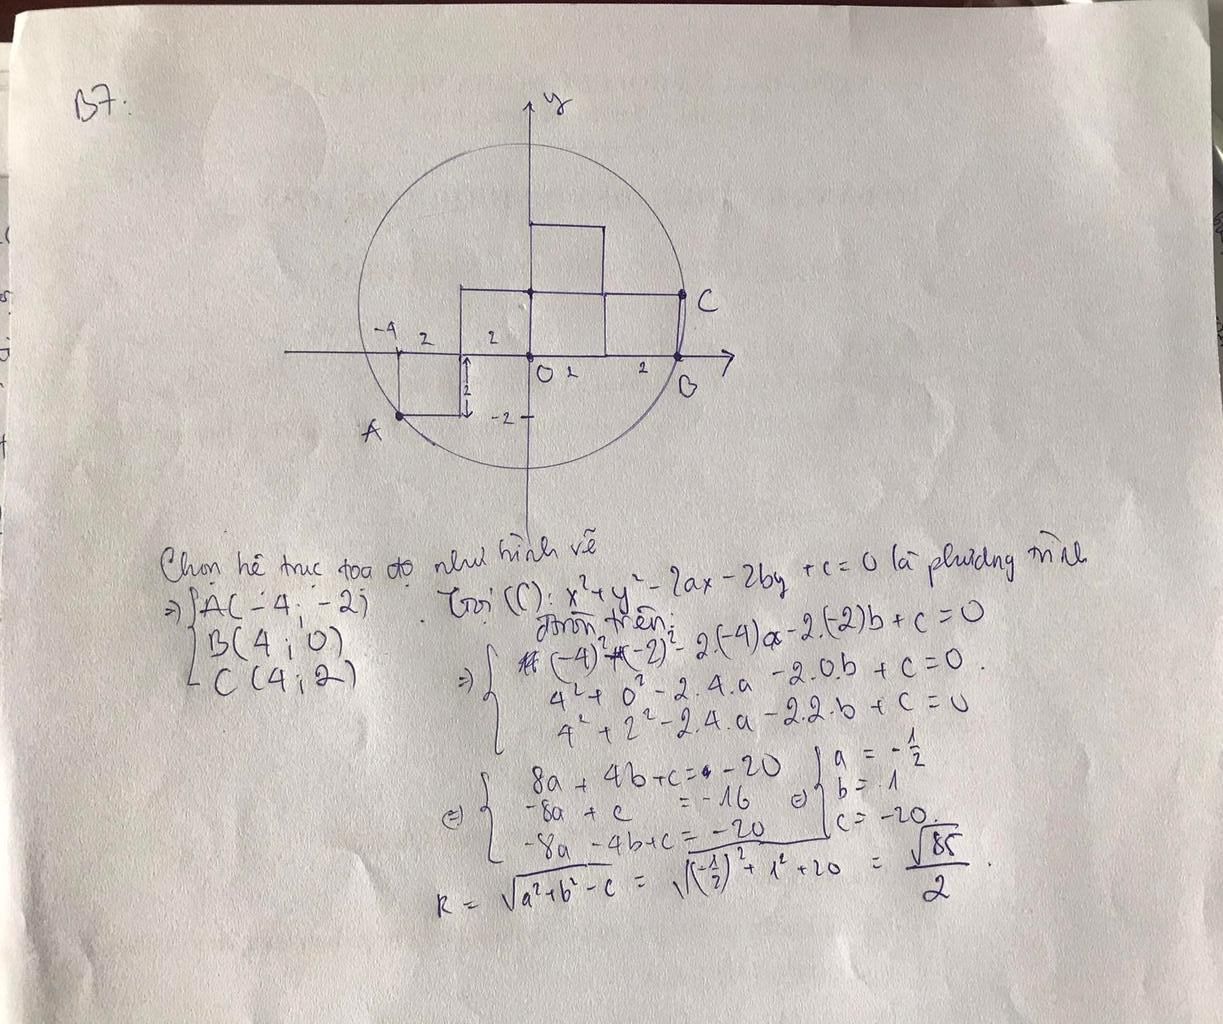 B7:
y
C
-4
2
2
2
O
2
2
B
A
-2
Chọn hệ trục tọa độ như hình vẽ
=> { A(-4; -2)
B(4; 0)
C(4; 2)
Gọi (C): x² + y² - 2ax - 2by + c = 0 là phương trình
tròn trên.
=> { (-4)² + (-2)² - 2.(-4)a - 2.(-2)b + c = 0
4² + 0² - 2.4.a - 2.0.b + c = 0.
4² + 2² - 2.4.a - 2.2.b + c = 0
<=> { 8a + 4b + c = -20
-8a + c = -16
-8a - 4b + c = -20
<=> { a = -1/2
b = 1
c = -20.
R = √(a² + b² - c) = √((-1/2)² + 1² + 20) = √85/2.